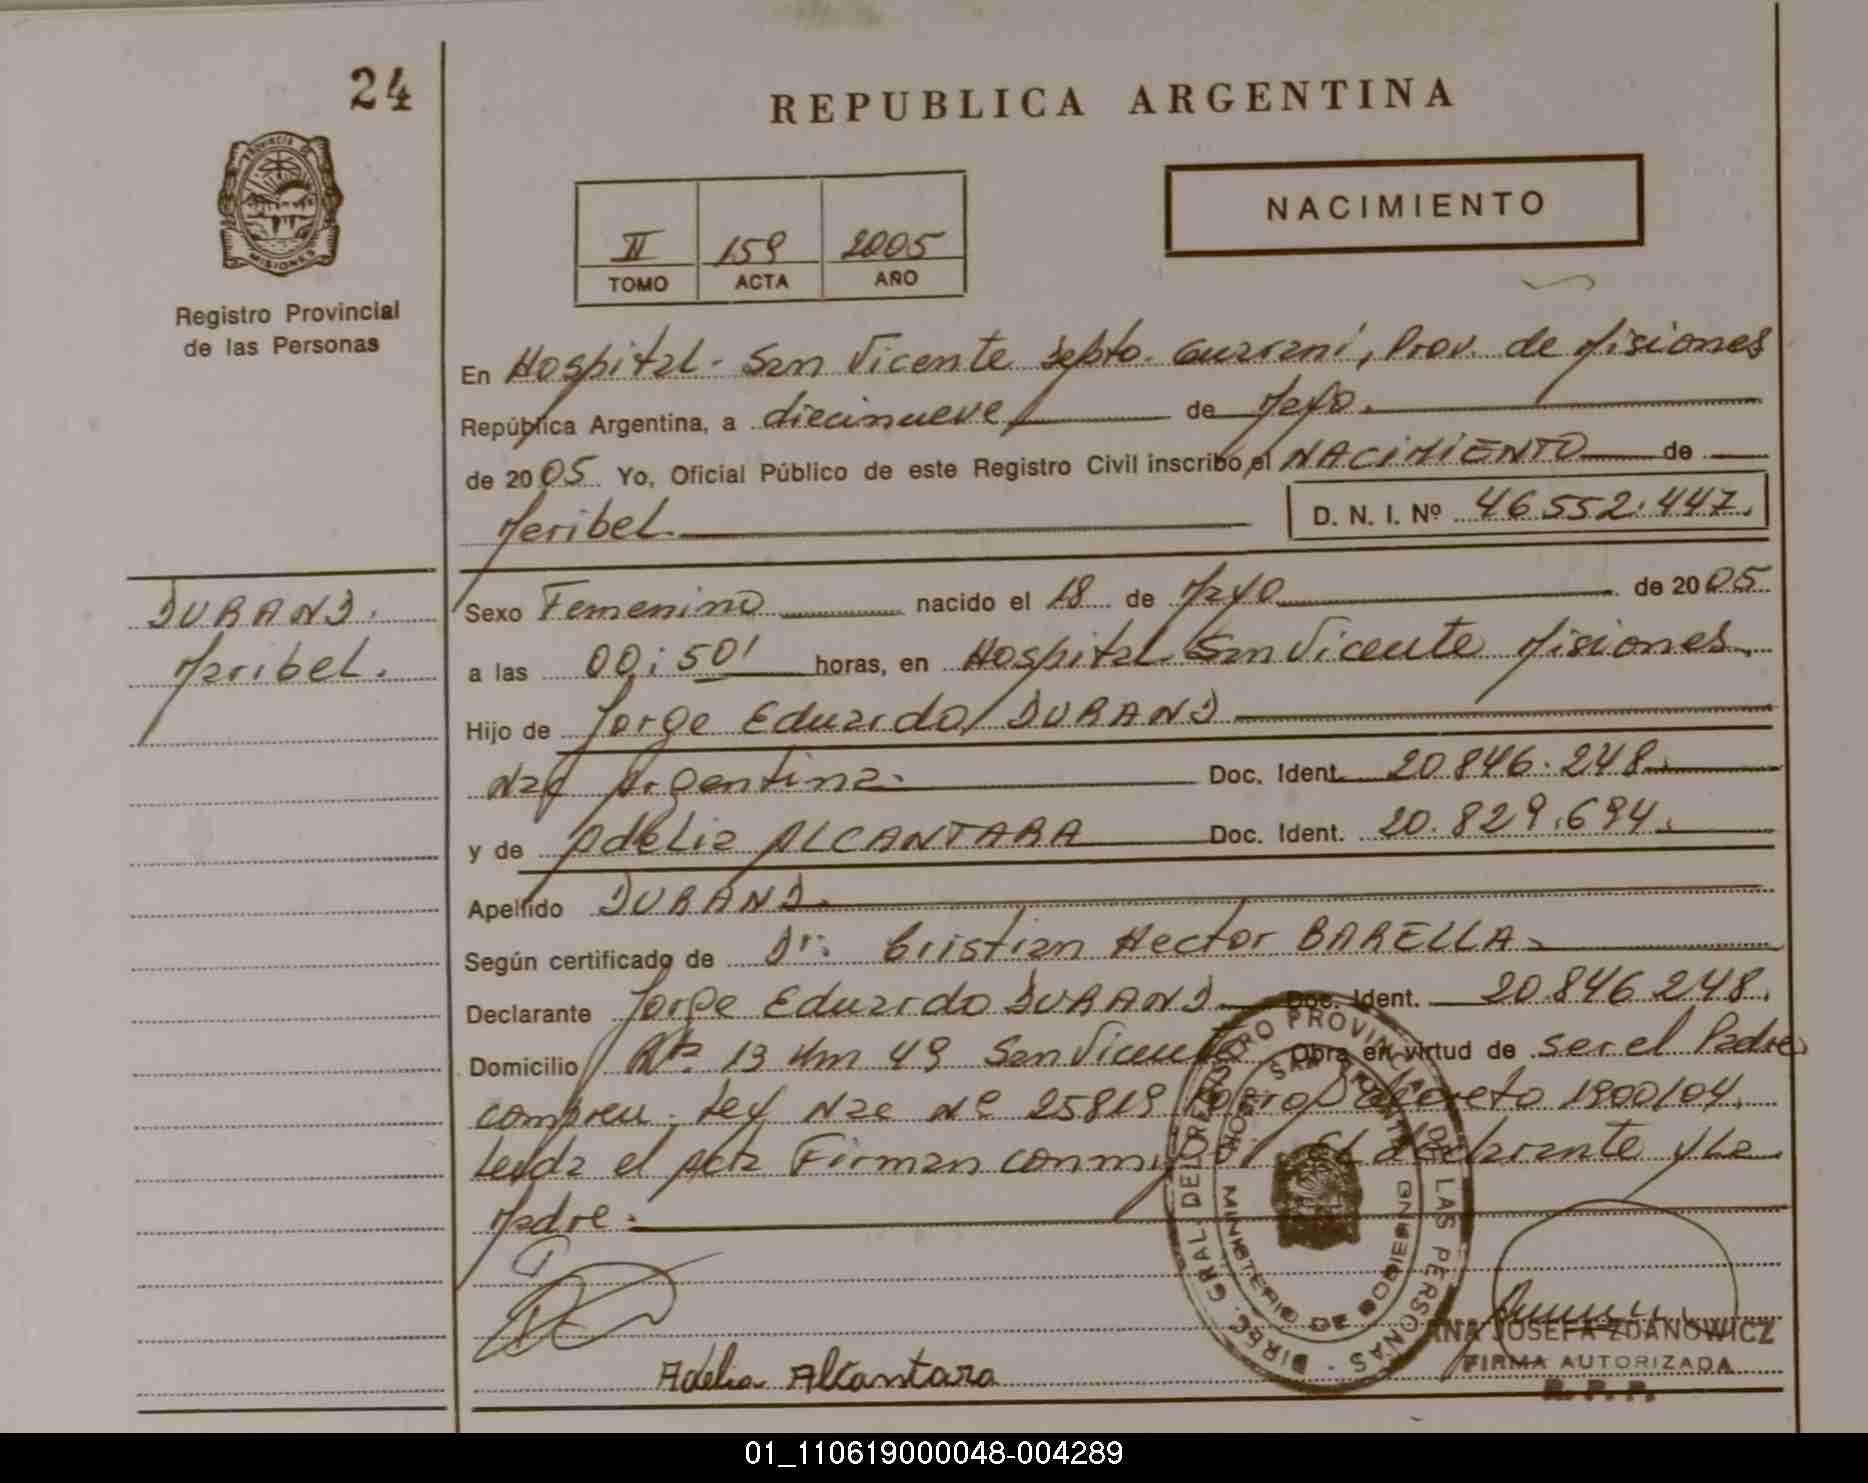 24
REPUBLICA ARGENTINA
PROVINCIA DE
MISIONES
Registro Provincial
de las Personas
II 159 2005
TOMO ACTA AÑO
NACIMIENTO
En Hospital - San Vicente Depto. Guarani, Prov. de Misiones
República Argentina, a diecinueve de Mayo.
de 2005 Yo, Oficial Público de este Registro Civil inscribo el NACIMIENTO de
Maribel. D. N. I. Nº 46552.447.
DURAND.
Maribel.
Sexo Femenino nacido el 18 de Mayo de 2005
a las 00:50' horas, en Hospital San Vicente Misiones
Hijo de Jorge Eduardo DURAND
Nac Argentina. Doc. Ident. 20846.248
y de Adelia ALCANTARA Doc. Ident. 20.829.694.
Apellido DURAND
Según certificado de Dr. Cristian Hector BARELLA
Declarante Jorge Eduardo DURAND Doc. Ident. 20846248.
Domicilio Rta 13 Km 49 San Vicente Obra en virtud de ser el Padre
Ley Nac Nº 25819 Decreto 1900/04.
Leida el Acta Firman conmigo El declarante y La
Madre.
DIREC. GRAL. DEL REGISTRO PROVINCIAL DE LAS PERSONAS
MINISTERIO DE GOBIERNO
SAN VICENTE
Adelia Alcantara
ANA JOSEFA ZDANOWICZ
FIRMA AUTORIZADA
R. P. P.
01_110619000048-004289